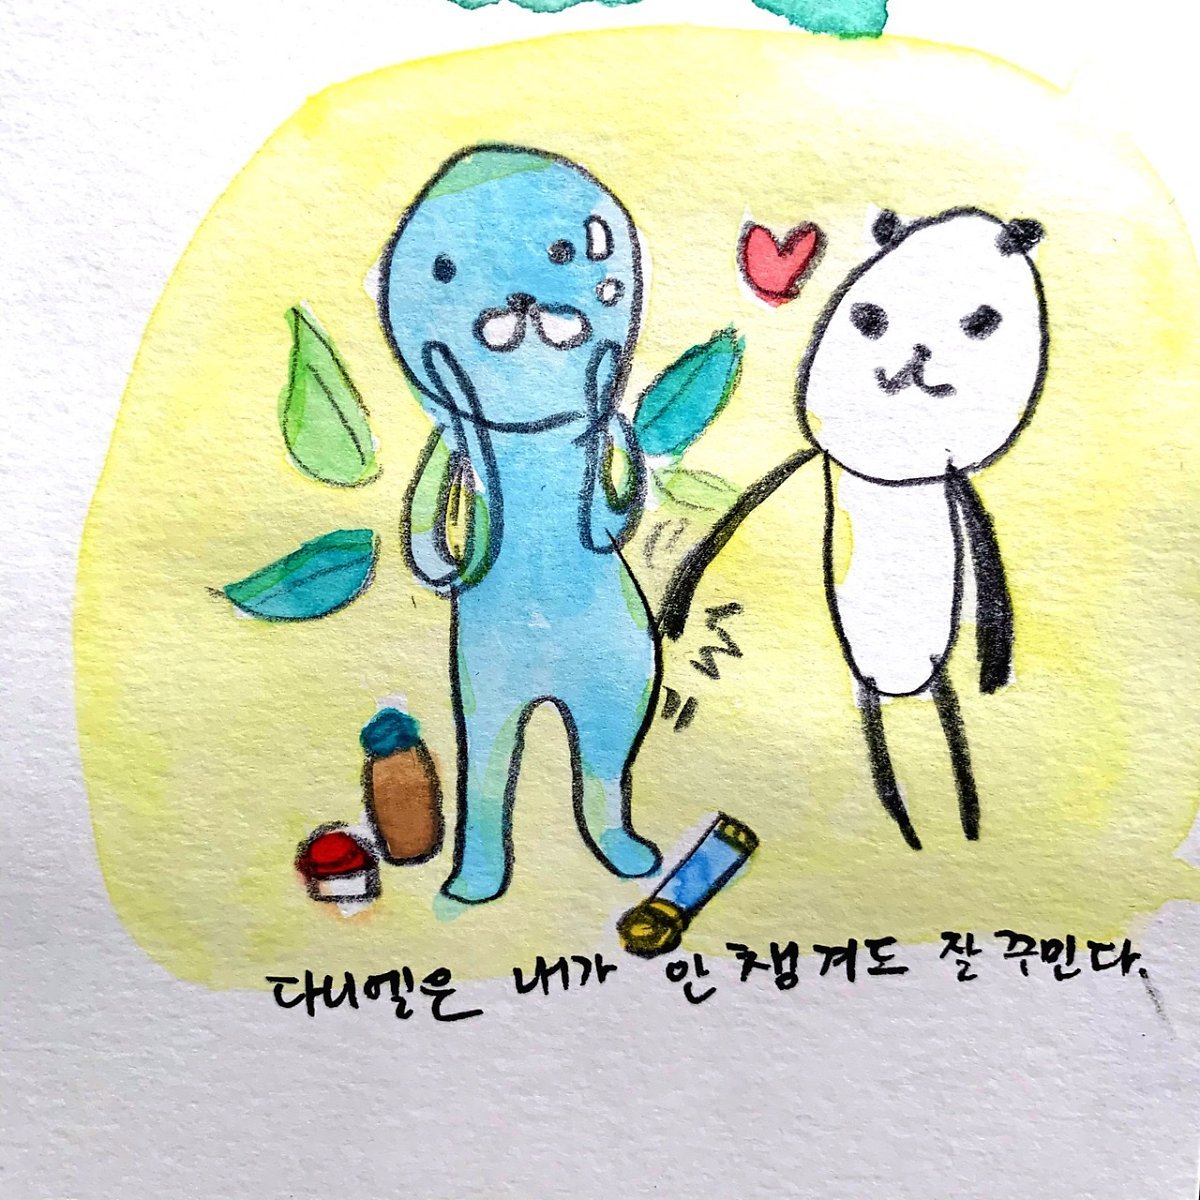 다니엘은 내가 안 챙겨도 잘 꾸민다.